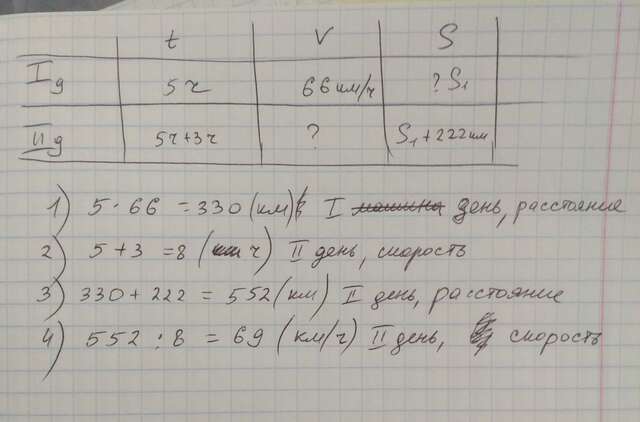 t V S
I д 5ч 66 км/ч ? S₁
II д 5ч+3ч ? S₁+222км
1) 5 · 66 = 330 (км) I день, расстояние
2) 5 + 3 = 8 (ч) II день, скорость
3) 330 + 222 = 552 (км) II день, расстояние
4) 552 : 8 = 69 (км/ч) II день, скорость